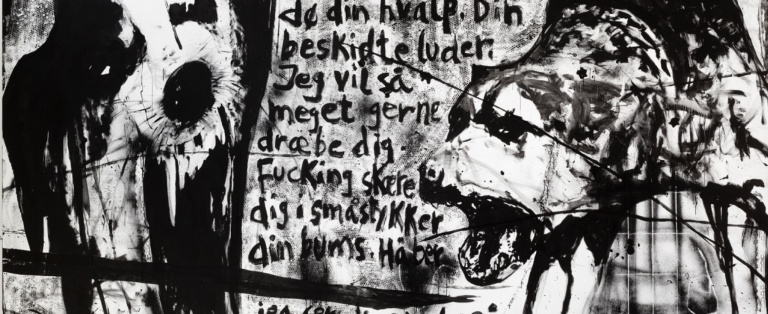 dø din hvalp. Din
beskidte luder.
Jeg vil så
meget gerne
dræbe dig.
Fucking skære
dig i småstykker
din bums. Håber
jeg